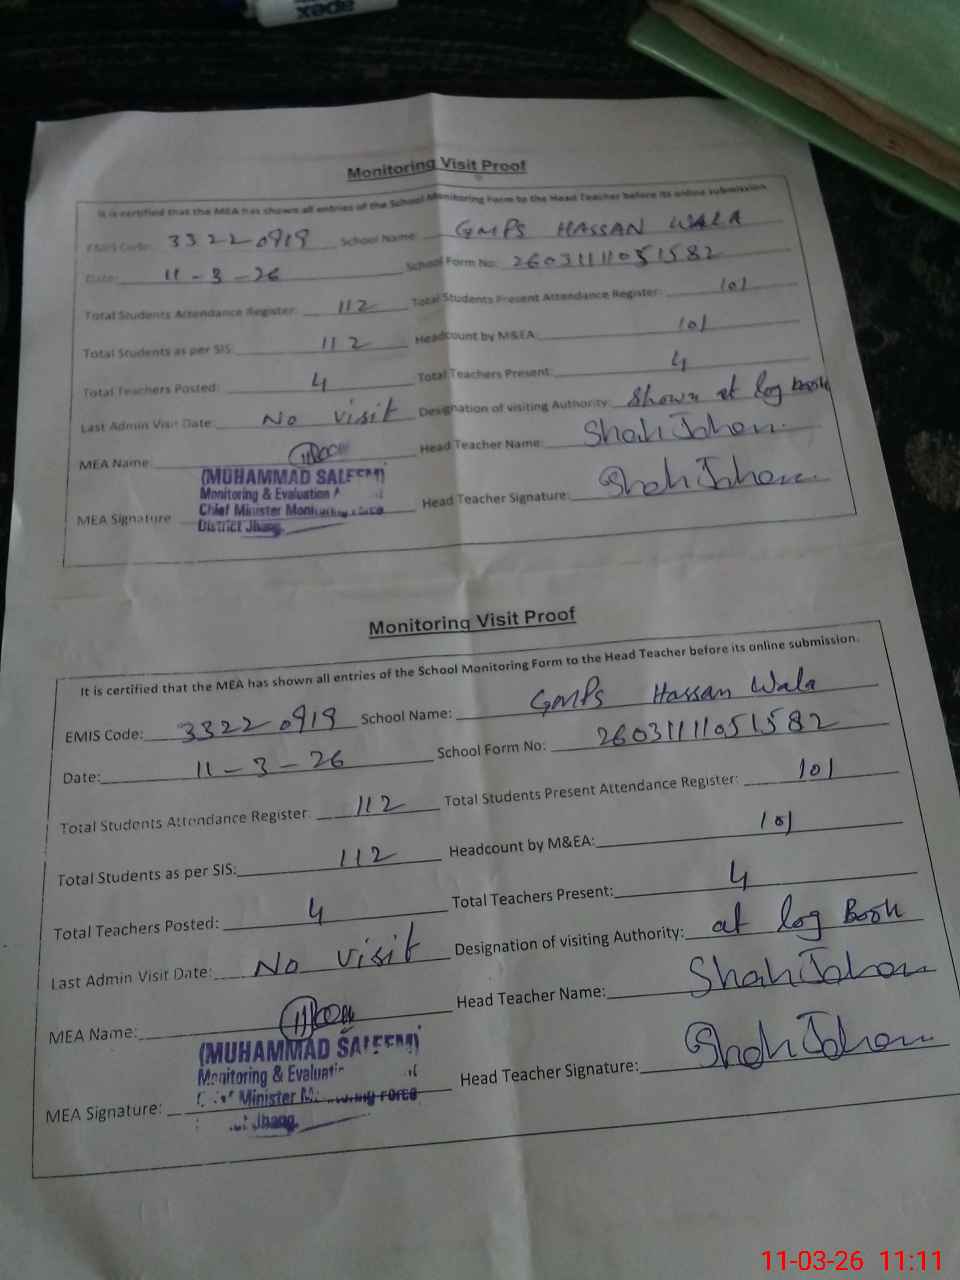 apex
Monitoring Visit Proof
It is certified that the MEA has shown all entries of the School Monitoring Form to the Head Teacher before its online submission
EMIS Code: 33220919 School Name: GMPS HASSAN WALA
Date: 11-3-26 School Form No: 26031111051582
Total Students Attendance Register: 112 Total Students Present Attendance Register: 101
Total Students as per SIS: 112 Headcount by M&EA: 101
Total Teachers Posted: 4 Total Teachers Present: 4
Last Admin Visit Date: No visit Designation of visiting Authority: Shown at log book
MEA Name: Head Teacher Name: Shah Jahan
(MUHAMMAD SALEEM)
Monitoring & Evaluation
Chief Minister Monitoring Force
District Jhang.
MEA Signature Head Teacher Signature: Shah Jahan
Monitoring Visit Proof
It is certified that the MEA has shown all entries of the School Monitoring Form to the Head Teacher before its online submission.
EMIS Code: 33220919 School Name: GMPS Hassan Wala
Date: 11-3-26 School Form No: 26031111051582
Total Students Attendance Register: 112 Total Students Present Attendance Register: 101
Total Students as per SIS: 112 Headcount by M&EA: 101
Total Teachers Posted: 4 Total Teachers Present: 4
Last Admin Visit Date: No visit Designation of visiting Authority: at log Book
MEA Name: Head Teacher Name: Shah Jahan
(MUHAMMAD SALEEM)
Monitoring & Evaluation
Minister Monitoring Force
Jhang.
MEA Signature: Head Teacher Signature: Shah Jahan
11-03-26 11:11